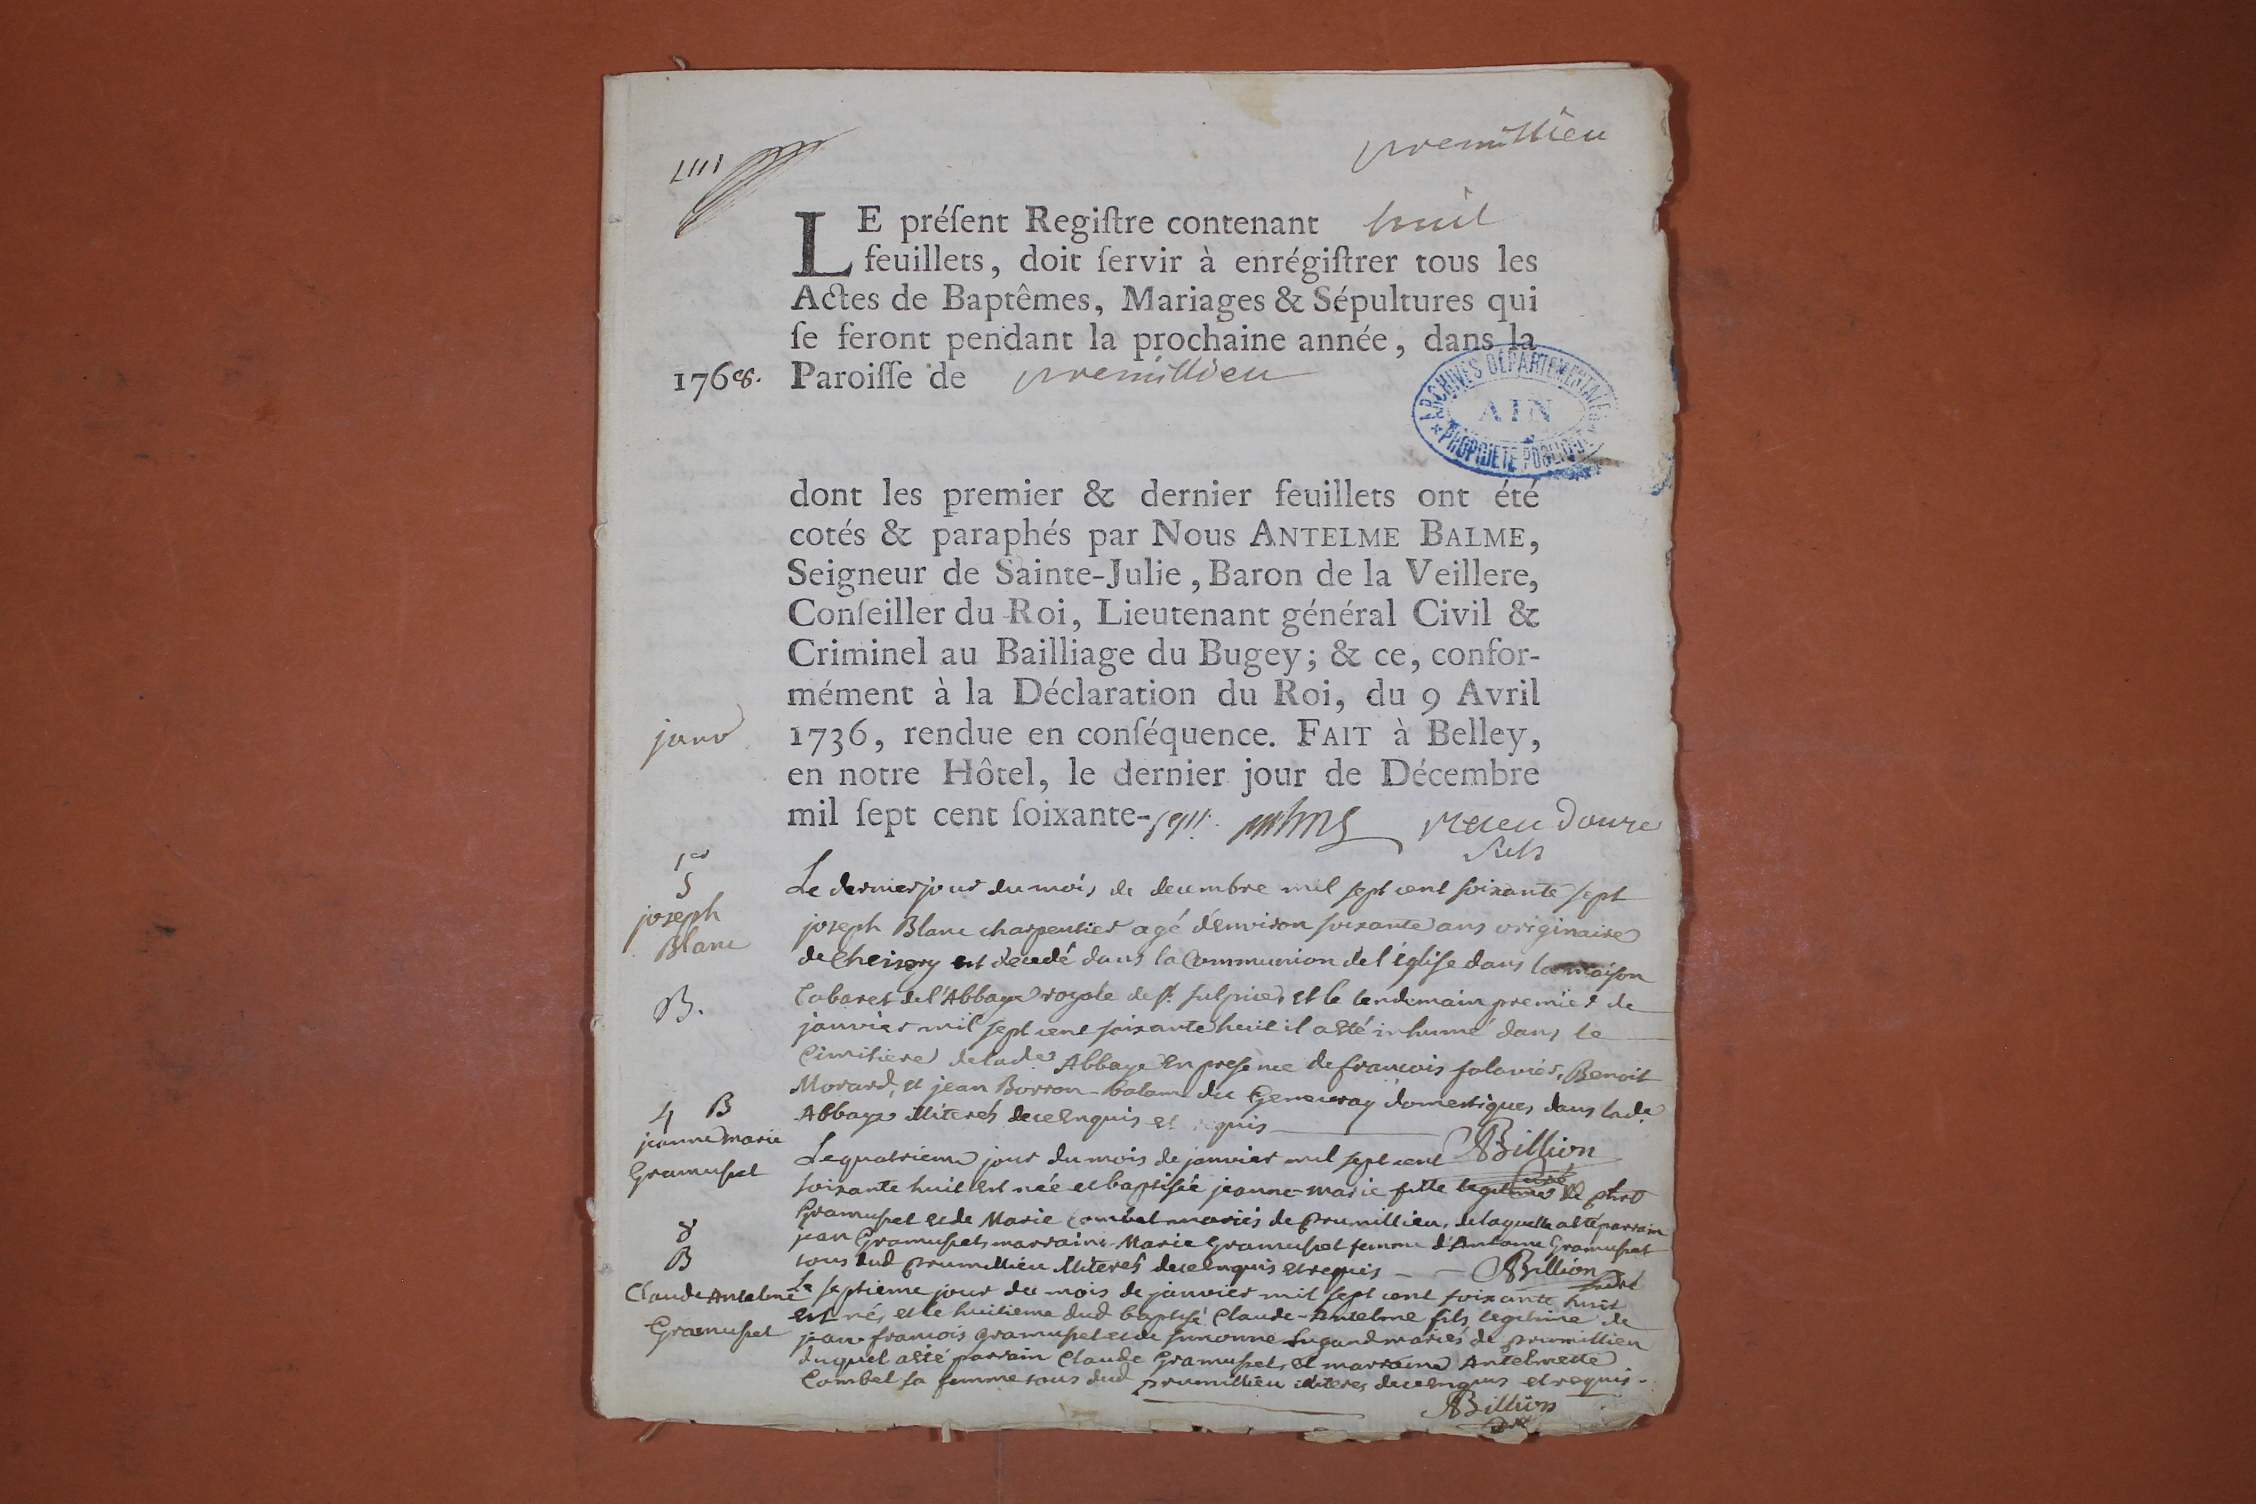 premillieu
LE préſent Regiſtre contenant huit
feuillets, doit ſervir à enrégiſtrer tous les
Actes de Baptêmes, Mariages & Sépultures qui
ſe feront pendant la prochaine année, dans la
1768. Paroiſſe de premillieu
ARCHIVES DÉPARTEMENTALES
AIN
PROPRIÉTÉ PUBLIQUE
dont les premier & dernier feuillets ont été
cotés & paraphés par Nous ANTELME BALME,
Seigneur de Sainte-Julie, Baron de la Veillere,
Conſeiller du Roi, Lieutenant général Civil &
Criminel au Bailliage du Bugey; & ce, confor-
mément à la Déclaration du Roi, du 9 Avril
janv 1736, rendue en conſéquence. FAIT à Belley,
en notre Hôtel, le dernier jour de Décembre
mil ſept cent ſoixante-sept.
1er
S
joseph
Blanc
Le dernier jour du mois de decembre mil sept cent soixante sept
joseph Blanc charpentier agé d'environ soixante ans originaire
de Cheisery est decedé dans la Communion de l'église dans la maison
B.
Cabaret de l'Abbaye royale de st. sulpice, et le lendemain premier de
janvier mil sept cent soixante huit il a esté inhumé dans le
Cimitiere de lade. Abbaye en presence de francois Benoit
Morard, et jean Borron du Genevray domestiques dans lade.
Abbaye illiterés de ce enquis et requis
Billion
curé
4 B
jeanne marie
Gramuset
Le quatrieme jour du mois de janvier mil sept cent
soixante huit est née et baptisée jeanne-marie fille legitime de
Gramuset et de Marie Combet mariés de prumillieu, de laquelle a esté parrain
jean Gramuset, marraine Marie Gramuset femme d'Antoine Gramuset
tous dud prumillieu illiterés de ce enquis et requis
Billion
curé
8
B
Claude Antelme
Gramuset
Le septieme jour du mois de janvier mil sept cent soixante huit
est né, et le huitieme dud baptisé Claude-Antelme fils legitime de
jean-francois Gramuset et de simonne Lugand mariés de prumillieu
duquel a esté parrain Claude Gramuset, et marraine Antelmette
Combet sa femme tous dud prumillieu illiterés de ce enquis et requis.
Billion